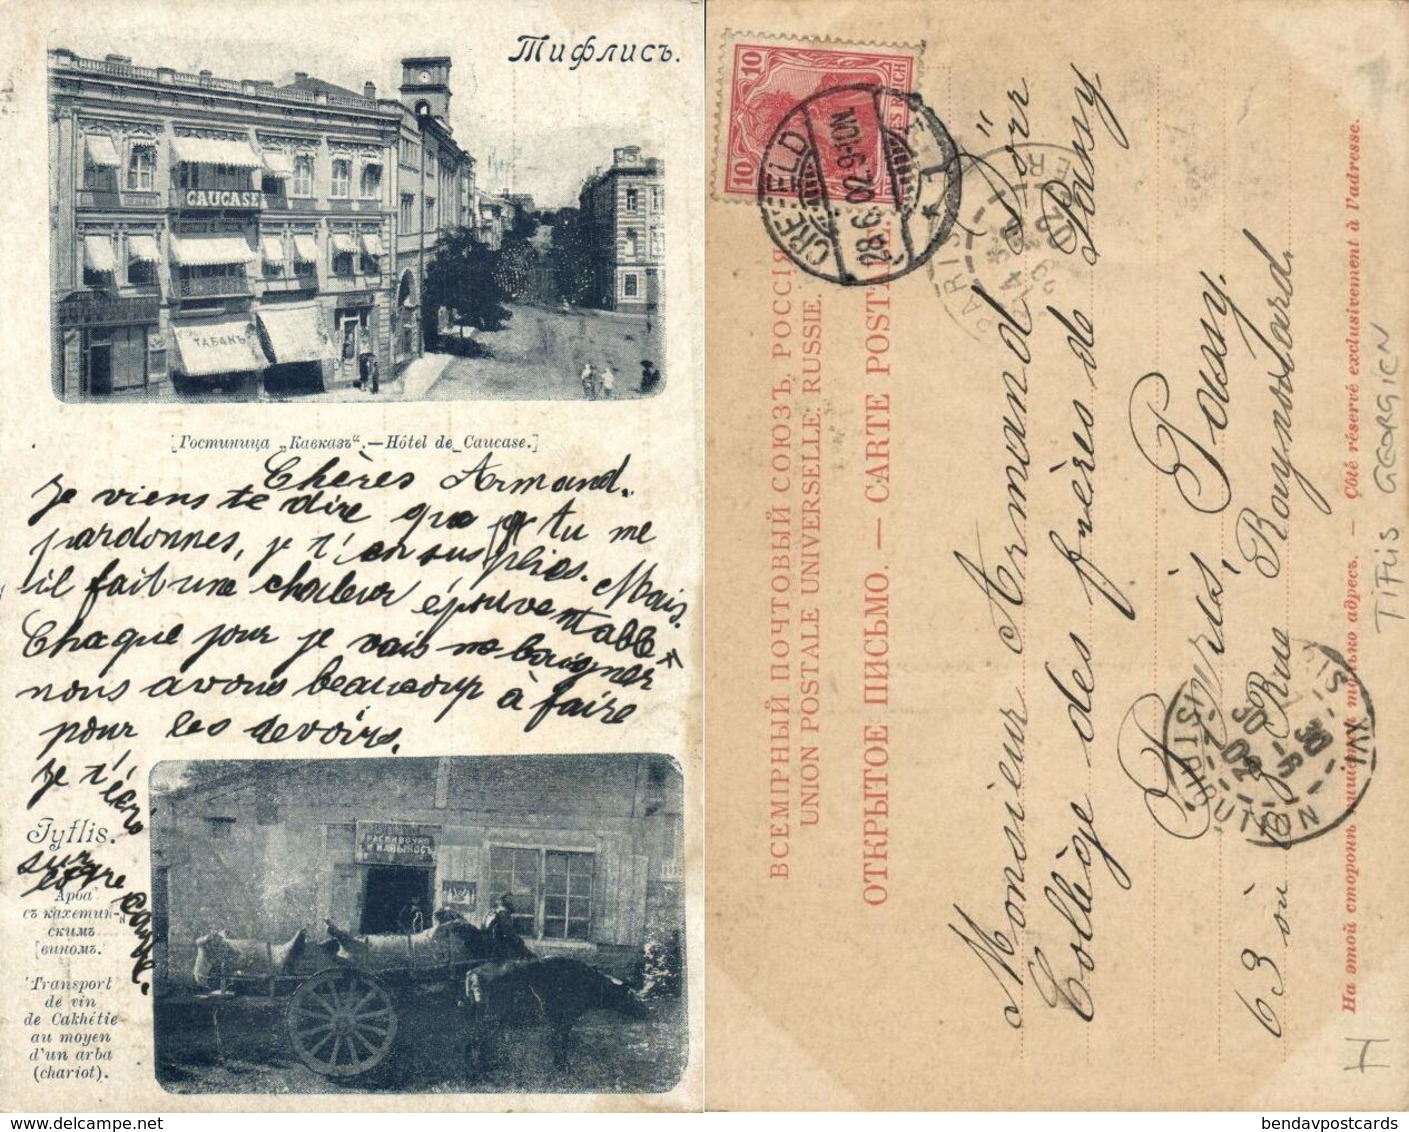 Тифлисъ.
CAUCASE
ТАБАКЪ
[Гостиница „Кавказъ“.—Hôtel de Caucase.]
Chères Armand.
Je viens te dire que tu me
pardonnes, je t'en suplies. Mais
il fait une chaleur épouventable
Chaque jour je vais me baigner
nous avons beaucoup à faire
pour les devoirs.
Je t'écris
sur
cette carte
Tyflis.
Арба
съ кахетин-
скимъ
[виномъ.
Transport
de vin
de Cakhétie
au moyen
d'un arba
(chariot).
10 10
CREFELD
28.6.02.9-10N.
ВСЕМІРНЫЙ ПОЧТОВЫЙ СОЮЗЪ. РОССІЯ
UNION POSTALE UNIVERSELLE. RUSSIE.
ОТКРЫТОЕ ПИСЬМО. — CARTE POSTALE.
Monsieur Armand Dörr
Collège des frères de Passy
Paris, Passy.
63 où 69 Rue Raynouard.
PARIS
PARIS XVI
DISTRIBUTION
На этой сторонѣ пишутъ только адресъ. — Côté réservé exclusivement à l'adresse.
TIFLIS GEORGIEN
delcampe.net
bendavpostcards